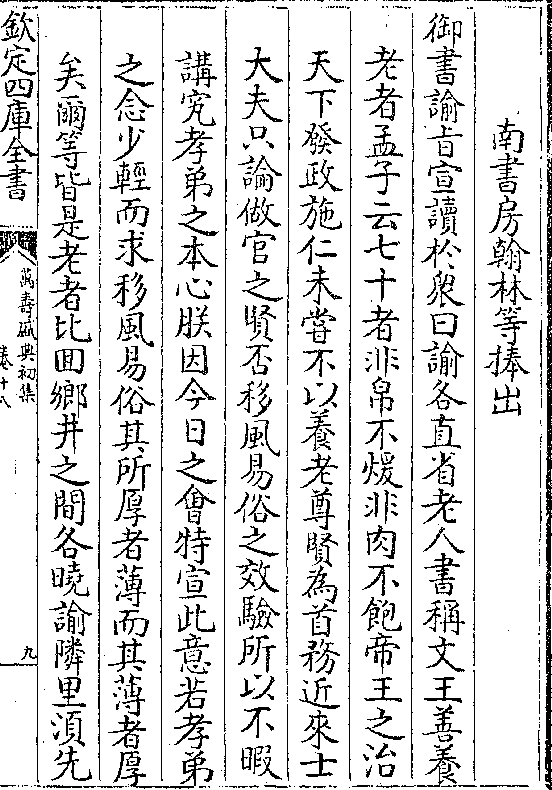 南書房翰林等捧出
御書諭旨宣讀於衆曰諭各直省老人書稱文王善養
老者孟子云七十者非帛不煖非肉不飽帝王之治
天下發政施仁未嘗不以養老尊賢為首務近來士
大夫只論做官之賢否移風易俗之效驗所以不暇
講究孝弟之本心朕因今日之會特宣此意若孝弟
之念少輕而求移風易俗其所厚者薄而其薄者厚
矣爾等皆是老者比回鄉井之間各曉諭隣里須先
欽定四庫全書
萬壽盛典初集
卷十八
九